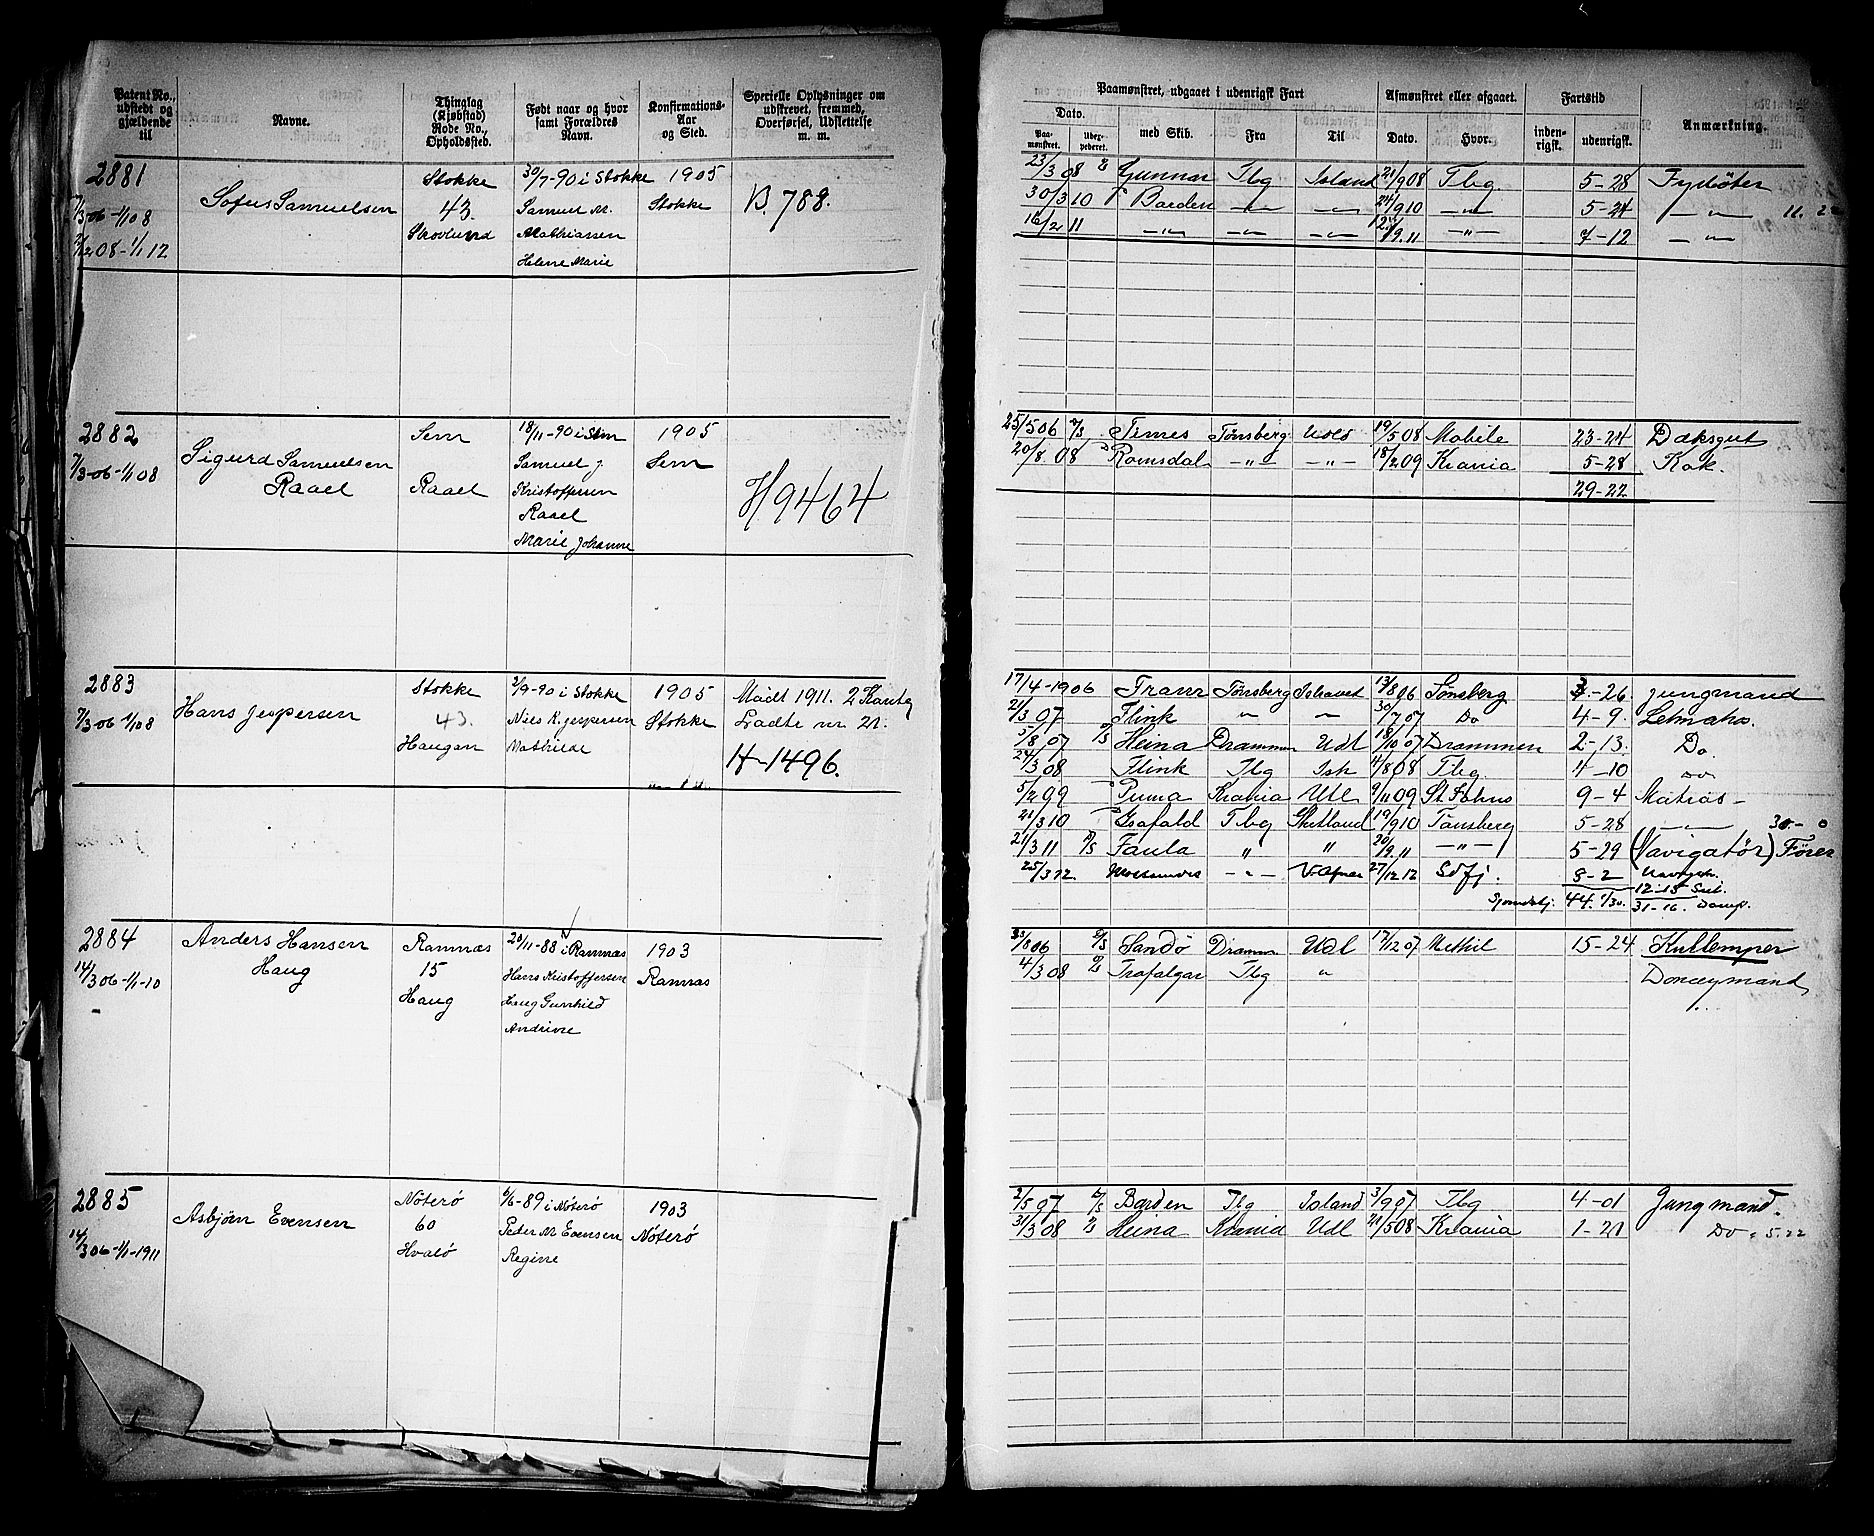 Patent No., udstedt og gjældende til
Navne.
Thinglag (Kjøbstad) Rode No., Opholdssted.
Født naar og hvor samt Forældres Navn.
Konfirmations- Aar og Sted.
Specielle Oplysninger om udskrevet, fremmed, Overførsel, Udslettelse m. m.
Paamønstret, udgaaet i udenrigsk Fart
Dato.
Paa- mønstret.
med Skib.
Fra
Til
Afmønstret eller afgaaet.
Dato.
Hvor.
Fartstid
inden- rigsk.
udenrigsk.
Anmærkning.
2881
7/3 06-1/1 08
08-1/1 12
Sofus Samuelsen
Stokke
43.
Skovlund
30/7-90 i Stokke
Samuel M.
Mathiassen
Helene Marie
1905
Stokke
B. 788.
23/3 08 Gunnar Tbg Island 21/9 08 Tbg. 5-28
30/3 10 Barden —„— —„— 24/9 10 —„— 5-24 —„—
16/2 11 —„— —„— —„— —„— 7-12 —„—
2882
7/3-06-1/1 08
Sigurd Samuelsen
Raael
Sem
Raael
18/11-90 i Sem
Samuel J.
Kristoffersen
Raael
Marie Johanne
1905
Sem
H 9464
25/5 06 Tönsberg Udld 19/5 08 Mobile 23-24 Dæksgut
20/8. 08 Romsdal —„— —„— 18/2 09 Krania 5-28 Kok.
29-22
2883
7/3 06-1/1 08
Hans Jespersen
Stokke
43.
Haugan
2/9-90 i Stokke
Niels K. Jespersen
Mathilde
1905
Stokke
Mødt 1911.
Lodtr nr 21.
H-1496.
17/4-1906 Fram Tönsberg Ishavet 13/8 06 Tönsberg 3-26. Jungmand
21/3 07 Flink „ „ 30/7 07 Do 4-9. Letmatro.
5/8 07 Heina Drammen Udl 18/10 07 Drammen 2-13. Do
24/3 08 Flink Tbg Ish 11/8 08 Tbg. 4-10 Do
5/2 09 Puma Krania Utl 9/11 09 St Johns 9-4 Matros-
21/3 10 Isafold Tbg Shetland 19/9 10 Tönsberg 5-28 —„—
21/3 11 Faula „ „ 20/9. 11 —„— 5-29 (Navigatör)
25/3 12. —„— 27/12 12 8-2
44. 1/30.
12-15
31-16. Damp.
2884
14/3 06-1/1-10
Anders Hansen
Haug
Ramnæs
15
Haug
20/11-88 i Ramnæs
Hans Kristoffersen
Haug Gunhild
Andrine
1903
Ramnæs
Sandö Drammn Udl 17/12 07 Methil 15-24 Kullemper
4/3 08 Trafalgar Tbg „ Donkeymand
2885
14/3 06-1/1-1911
Asbjörn Evensen
Nøterö
60
Hvalö
6/6-89 i Nøterö
Peder M Evensen
Regine
1903
Nøterö
2/5 07 Barden Tbg Island 3/9 07 Tbg 4-01 Jungmand.
31/3 08 Heina Krania Udl 21/5 08 Krania 1-20 Do 5.22